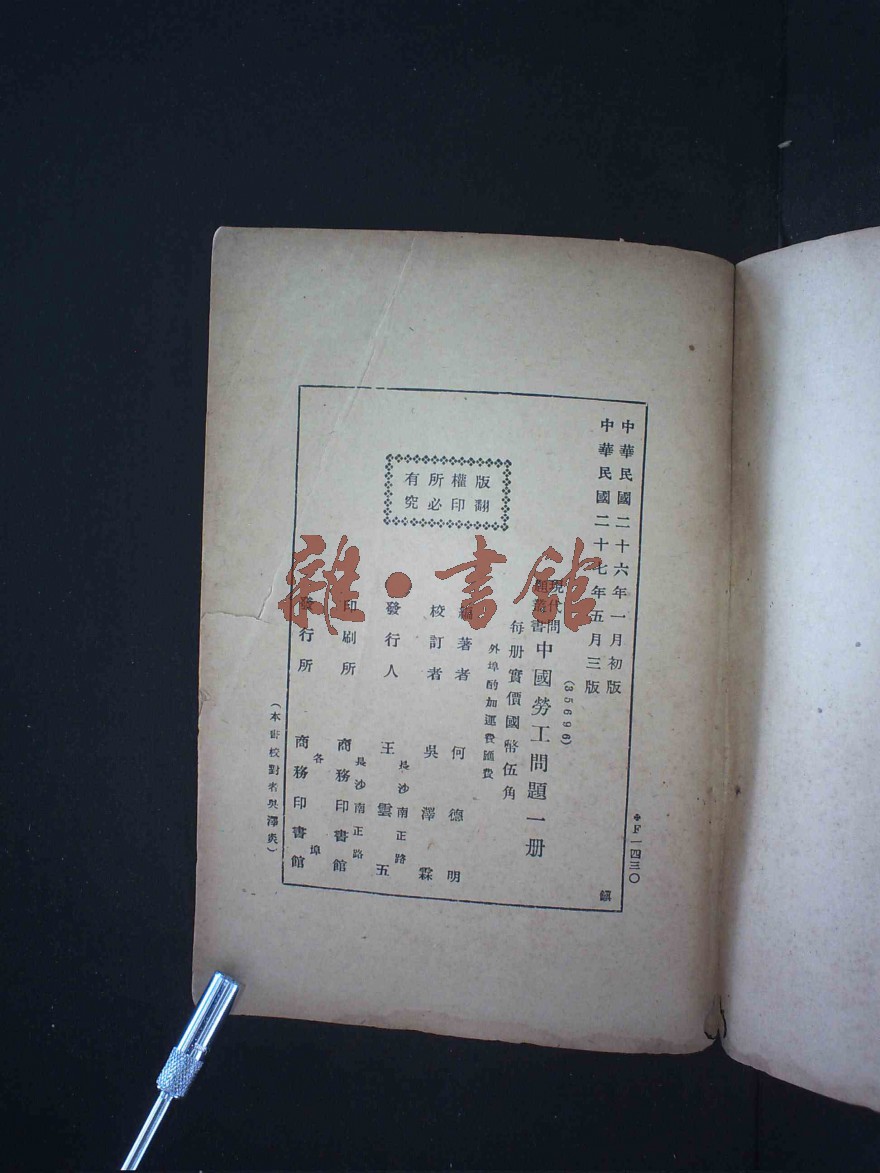 中華民國二十六年一月初版
中華民國二十七年五月三版
(35696)
現代問
題叢書
中國勞工問題一册
每册實價國幣伍角
外埠酌加運費匯費
編著者 何德明
校訂者 吳澤霖
長沙南正路
發行人 王雲五
長沙南正路
印刷所 商務印書館
各埠
發行所 商務印書館
版權所有
翻印必究
(本書校對者吳澤炎)
F一四三〇
雜·書館